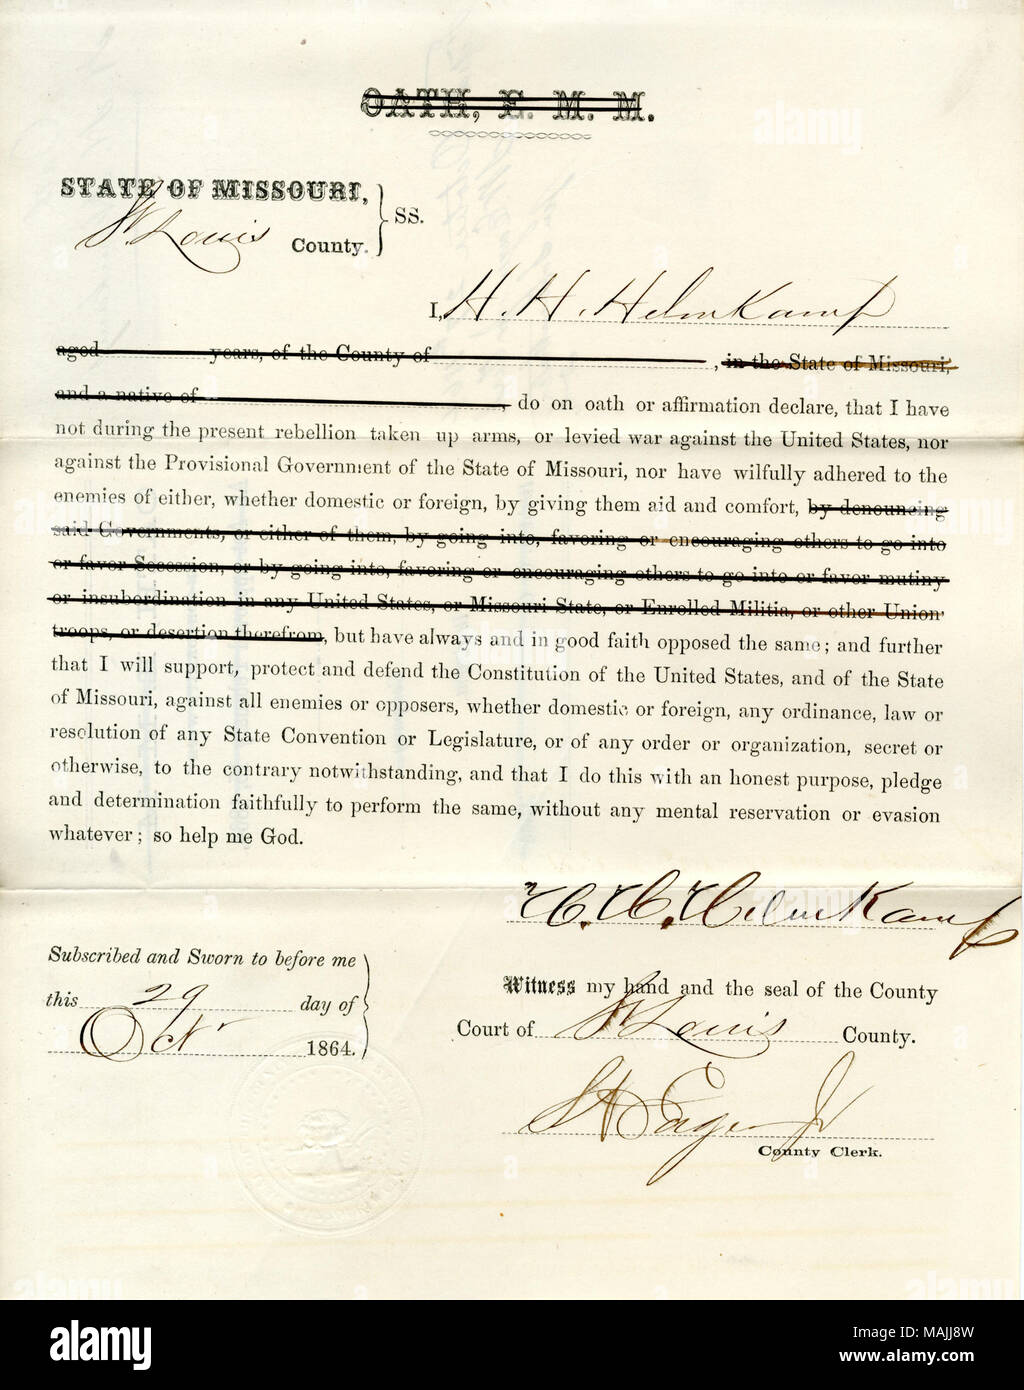 OATH, E. M. M.
STATE OF MISSOURI,
St. Louis County. } SS.
I, H. H. Helmkamp
aged years, of the County of , in the State of Missouri,
and a native of , do on oath or affirmation declare, that I have
not during the present rebellion taken up arms, or levied war against the United States, nor
against the Provisional Government of the State of Missouri, nor have wilfully adhered to the
enemies of either, whether domestic or foreign, by giving them aid and comfort, by denouncing
said Governments, or either of them, by going into, favoring or encouraging others to go into
or favor Secession, or by going into, favoring or encouraging others to go into or favor mutiny
or insubordination in any United States, or Missouri State, or Enrolled Militia, or other Union
troops, or desertion therefrom, but have always and in good faith opposed the same; and further
that I will support, protect and defend the Constitution of the United States, and of the State
of Missouri, against all enemies or opposers, whether domestic or foreign, any ordinance, law or
resolution of any State Convention or Legislature, or of any order or organization, secret or
otherwise, to the contrary notwithstanding, and that I do this with an honest purpose, pledge
and determination faithfully to perform the same, without any mental reservation or evasion
whatever; so help me God.
H. H. Helmkamp
Subscribed and Sworn to before me
this 29 day of
Octr 1864.
Witness my hand and the seal of the County
Court of St Louis County.
Eager Jr
County Clerk.
alamy
Image ID: MAJJ8W
www.alamy.com